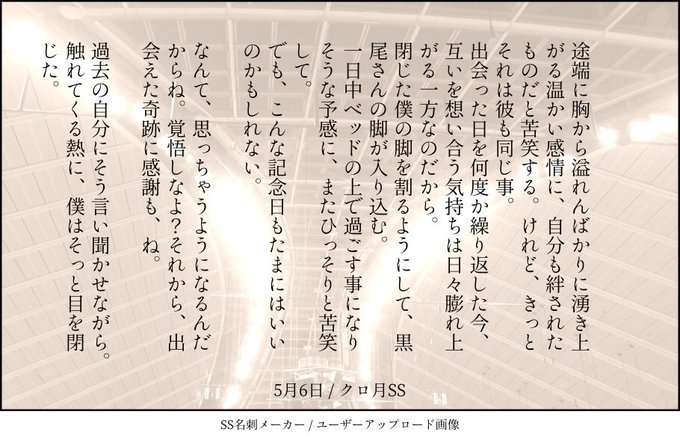 途端に胸から溢れんばかりに湧き上
がる温かい感情に、自分も絆された
ものだと苦笑する。けれど、きっと
それは彼も同じ事。
出会った日を何度か繰り返した今、
互いを想い合う気持ちは日々膨れ上
がる一方なのだから。
閉じた僕の脚を割るようにして、黒
尾さんの脚が入り込む。
一日中ベッドの上で過ごす事になり
そうな予感に、またひっそりと苦笑
して。
でも、こんな記念日もたまにはいい
のかもしれない。
なんて、思っちゃうようになるんだ
からね。覚悟しなよ?それから、出
会えた奇跡に感謝も、ね。
過去の自分にそう言い聞かせながら。
触れてくる熱に、僕はそっと目を閉
じた。
5月6日 / クロ月SS
SS名刺メーカー / ユーザーアップロード画像